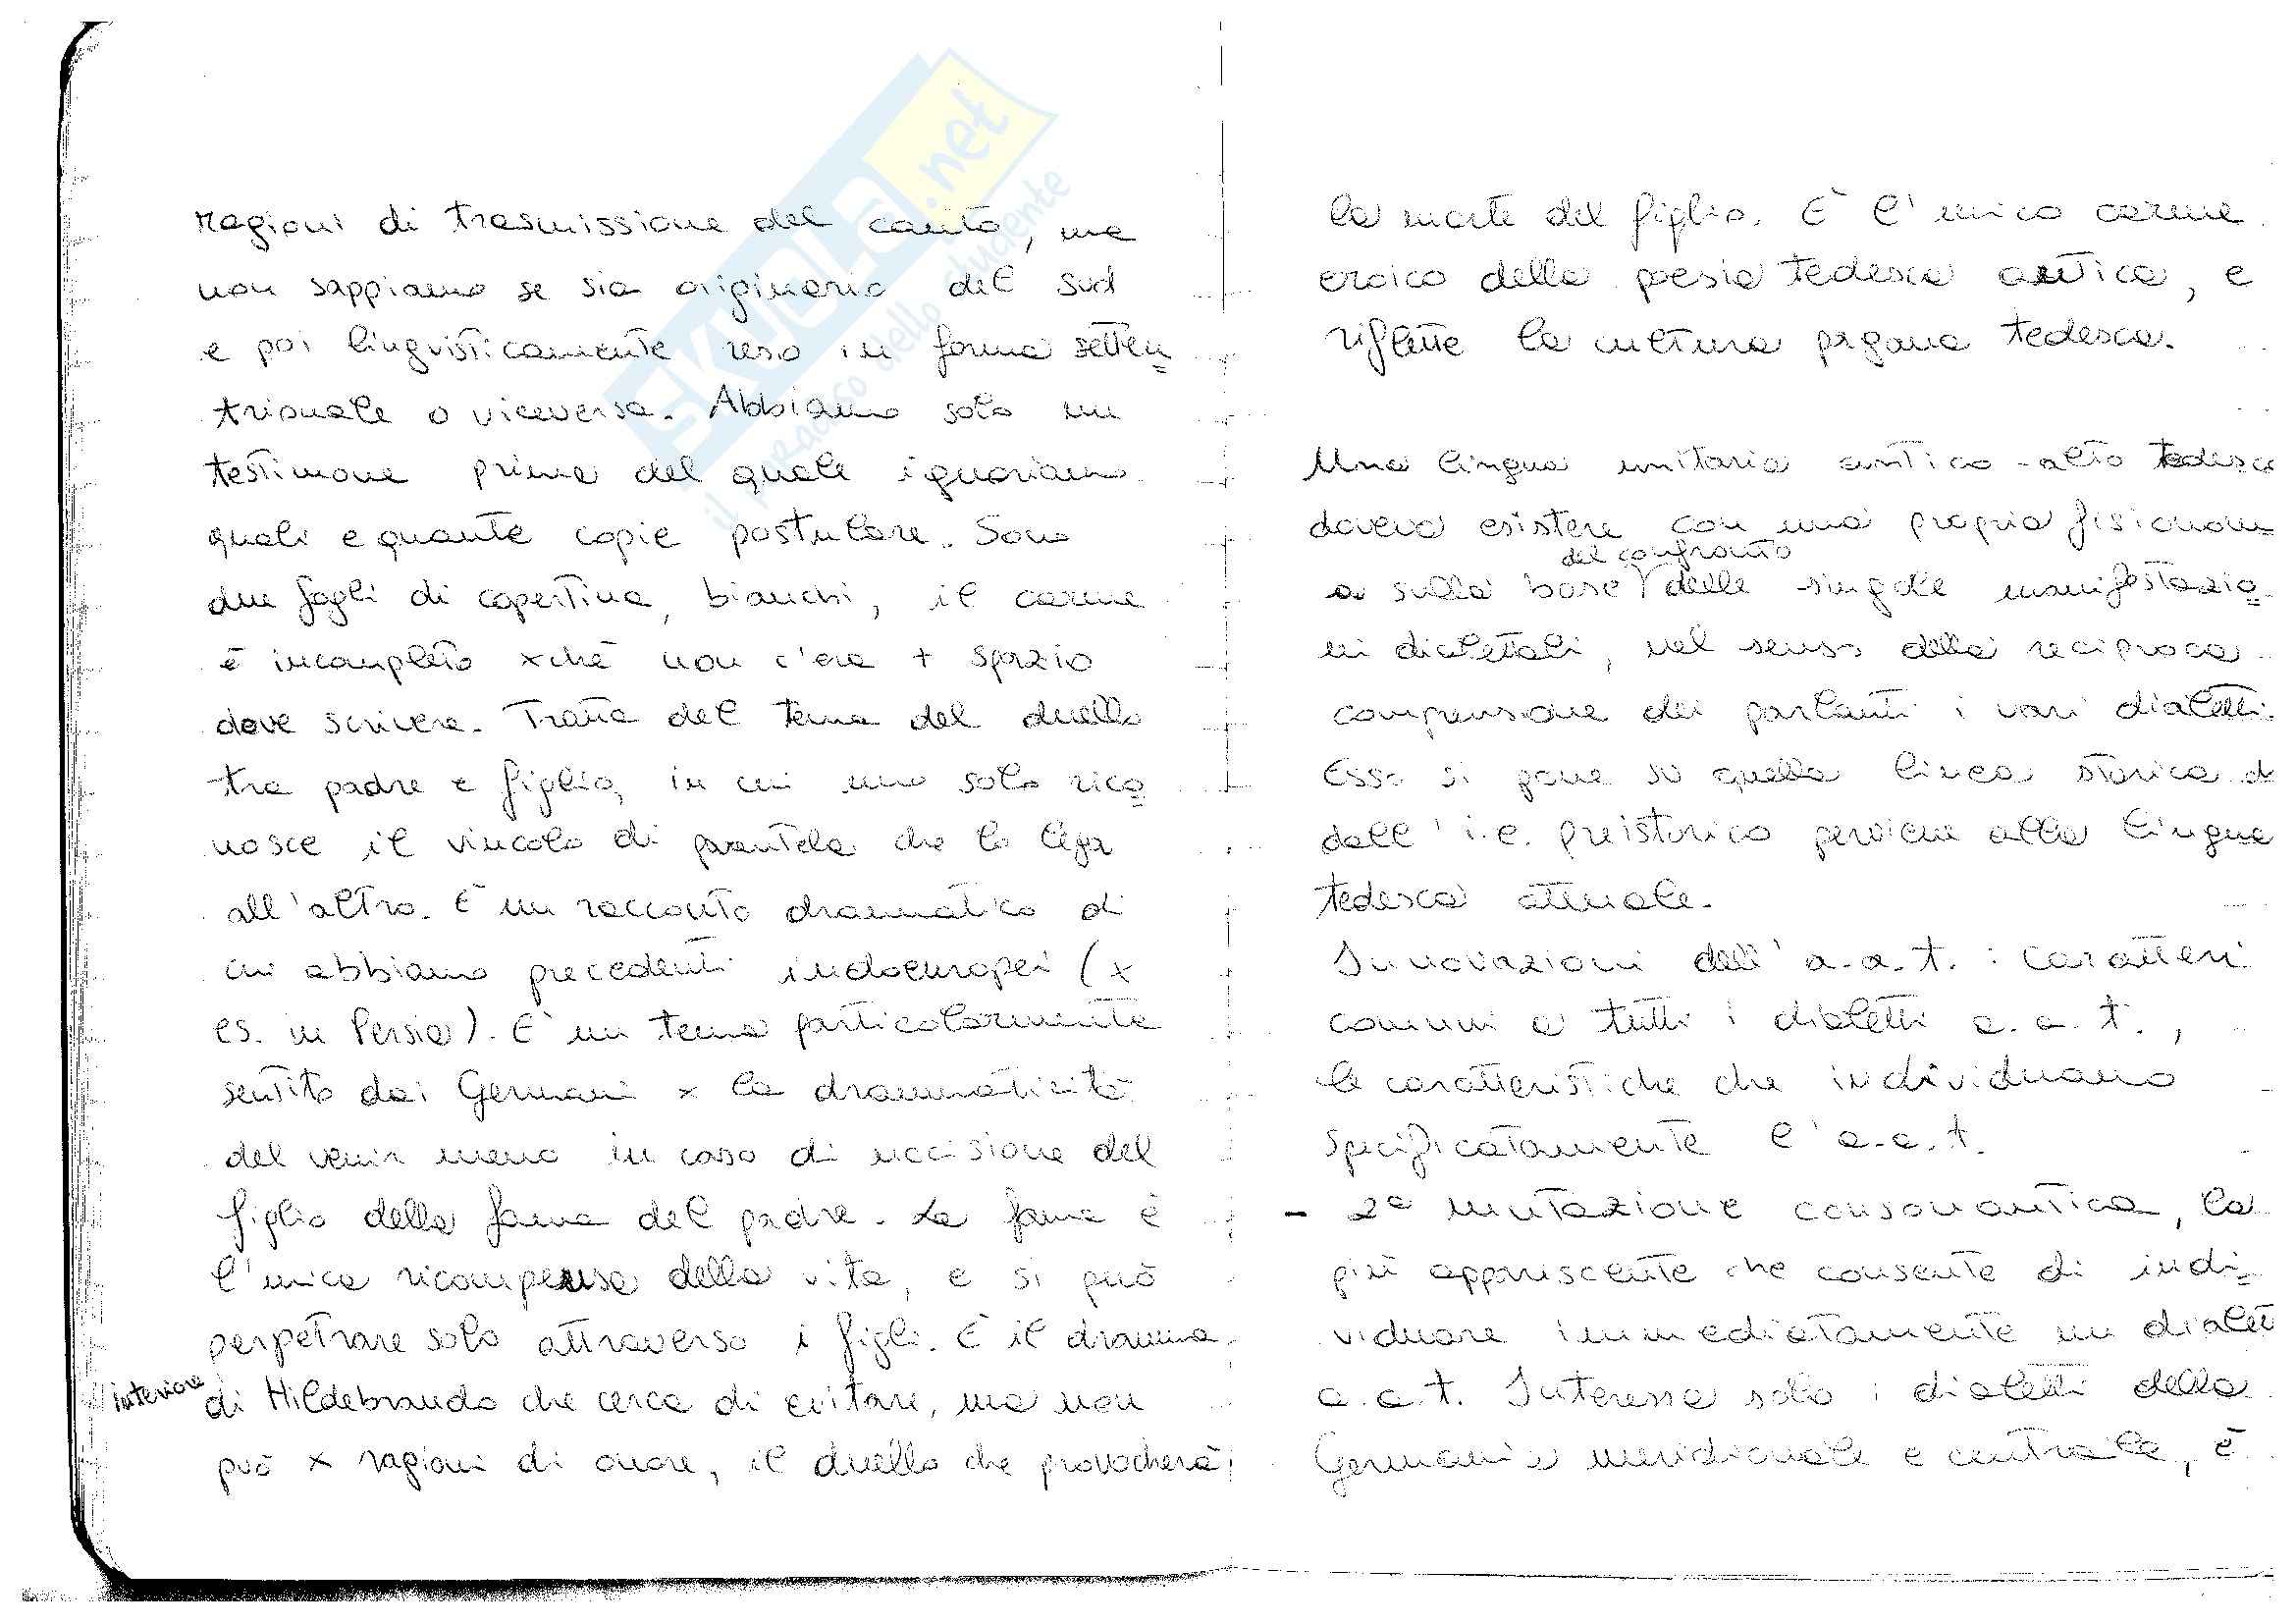 ragioni di trasmissione del canto, ma
non sappiamo se sia originario del sud
e poi linguisticamente reso in forma setten
trionale o viceversa. Abbiamo solo un
testimone prima del quale ignoriamo
quali e quante copie postulare. Sono
due fogli di copertina, bianchi, il carme
è incompleto xché non c'era + spazio
dove scrivere. Tratta del tema del duello
tra padre e figlio, in cui uno solo rico
nosce il vincolo di parentela che lo lega
all'altro. È un racconto drammatico di
cui abbiamo precedenti indoeuropei (x
es. in Persia). È un tema particolarmente
sentito dai Germani x la drammaticità
del venir meno in caso di uccisione del
figlio della fama del padre. La fama è
l'unica ricompensa della vita, e si può
perpetrare solo attraverso i figli. È il dramma
interiore di Hildebrando che cerca di evitare, ma non
può x ragioni di onore, il duello che provocherà
la morte del figlio. È l'unico carme
eroico della poesia tedesca antica, e
riflette la cultura pagana tedesca.
Una lingua unitaria antico-alto tedesca
doveva esistere con una propria fisionom
del confronto
a sulla base delle singole manifestazio
ni dialettali, nel senso della reciproca
comprensione dei parlanti i vari dialetti.
Esso si pone su quella linea storica
dall'i.e. preistorico perviene alla lingua
tedesca attuale.
Innovazioni dell'a.a.t.: caratteri
comuni a tutti i dialetti a.a.t.,
le caratteristiche che individuano
specificatamente l'a.a.t.
- 2ª mutazione consonantica, la
più appariscente che consente di indi
viduare immediatamente un dialet
a.a.t. Interessa solo i dialetti della
Germania meridionale e centrale, è
SKUOLA.net
il paradiso dello studente